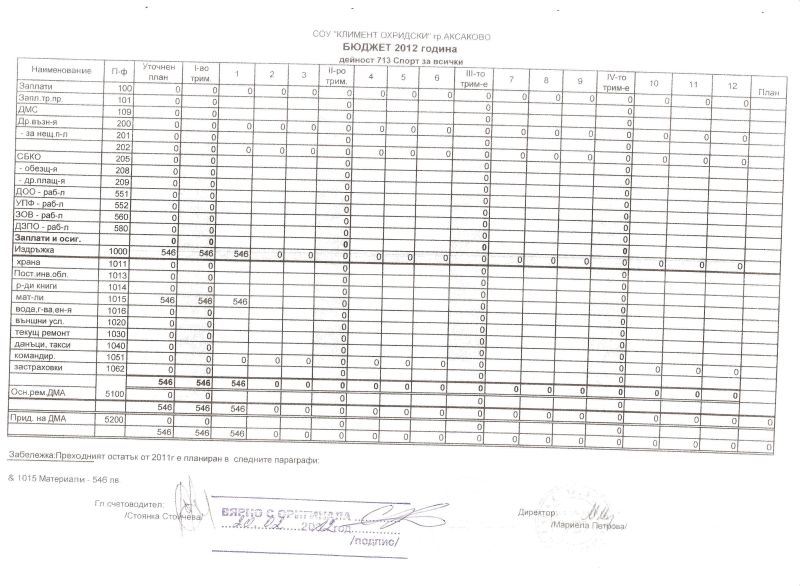 СОУ "КЛИМЕНТ ОХРИДСКИ" гр.АКСАКОВО
БЮДЖЕТ 2012 година
дейност 713 Спорт за всички
Наименование П-ф Уточнен план I-во трим. 1 2 3 II-ро трим. 4 5 6 III-то трим-е 7 8 9 IV-то трим-е 10 11 12 План
Заплати 100 0 0 0 0 0 0 0 0 0 0 0 0 0 0 0 0 0
Запл.тр.пр. 101 0 0 0 0 0
ДМС 109 0 0 0 0 0
Др.възн-я 200 0 0 0 0 0 0 0 0 0 0 0 0 0 0 0 0 0
- за нещ.п-л 201 0 0 0 0 0
202 0 0 0 0 0 0 0 0 0 0 0 0 0 0 0 0 0
СБКО 205 0 0 0 0 0
- обезщ-я 208 0 0 0 0 0
- др.плащ-я 209 0 0 0 0 0
ДОО - раб-л 551 0 0 0 0 0
УПФ - раб-л 552 0 0 0 0 0
ЗОВ - раб-л 560 0 0 0 0 0
ДЗПО - раб-л 580 0 0 0 0 0
Заплати и осиг. 0 0 0 0 0
Издръжка 1000 546 546 546 0 0 0 0 0 0 0 0 0 0 0 0 0 0
храна 1011 0 0 0 0 0
Пост.инв.обл. 1013 0 0 0 0 0
р-ди книги 1014 0 0 0 0 0
мат-ли 1015 546 546 546 0 0 0
вода,г-ва,ен-я 1016 0 0 0 0 0
външни усл. 1020 0 0 0 0 0
текущ ремонт 1030 0 0 0 0 0
данъци, такси 1040 0 0 0 0 0
командир. 1051 0 0 0 0 0 0 0 0 0 0 0 0 0 0 0 0 0
застраховки 1062 0 0 0 0 0
546 546 546 0 0 0 0 0 0 0 0 0 0 0 0 0 0
Осн.рем.ДМА 5100 0 0 0 0 0
546 546 546 0 0 0 0 0 0 0 0 0 0 0 0 0 0 0
Прид. на ДМА 5200 0 0 0 0 0
546 546 546 0 0 0 0 0 0 0 0 0 0 0 0 0 0 0
Забележка:Преходният остатък от 2011г е планиран в следните параграфи:
& 1015 Материали - 546 лв.
Гл.счетоводител:
/Стоянка Стойчева/
ВЯРНО С ОРИГИНАЛА
20.02 2012 год.
/подпис/
Директор:
/Мариела Петрова/